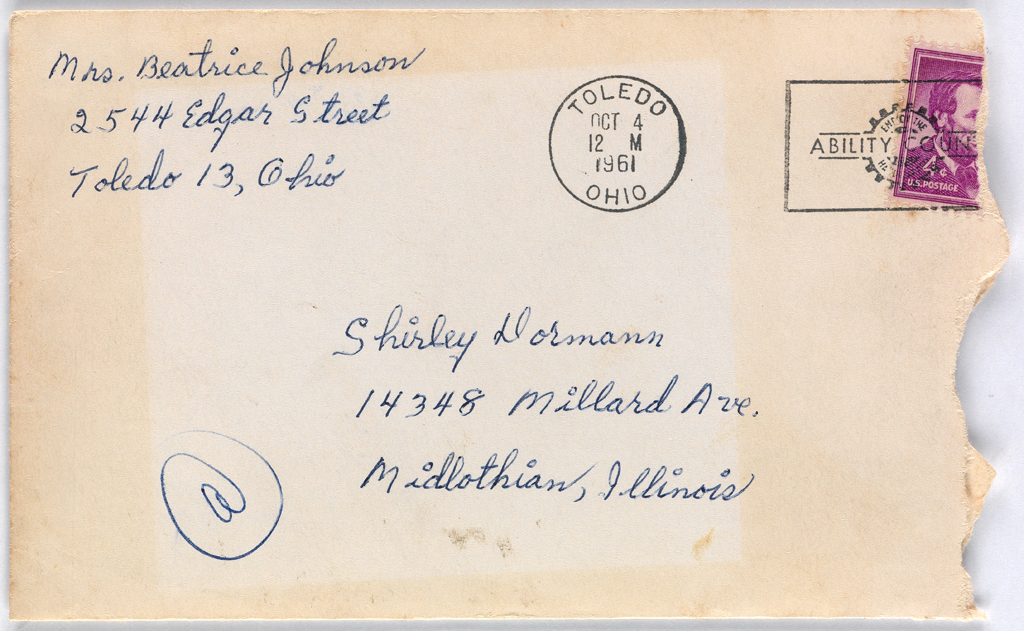 Mrs. Beatrice Johnson
2544 Edgar Street
Toledo 13, Ohio
TOLEDO
OCT 4
12 M
1961
OHIO
ABILITY COUN
4¢
U.S. POSTAGE
Shirley Dormann
14348 Millard Ave.
Midlothian, Illinois
a